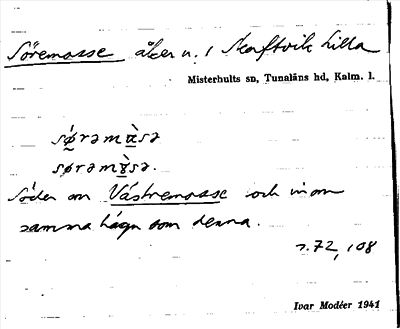 Söremosse åker n. i Skaftvik Lilla
Misterhults sn, Tunaläns hd, Kalm. l.
Söder om Västremosse och inom
samma hägn som denna.
s. 72, 108
Ivar Modéer 1941